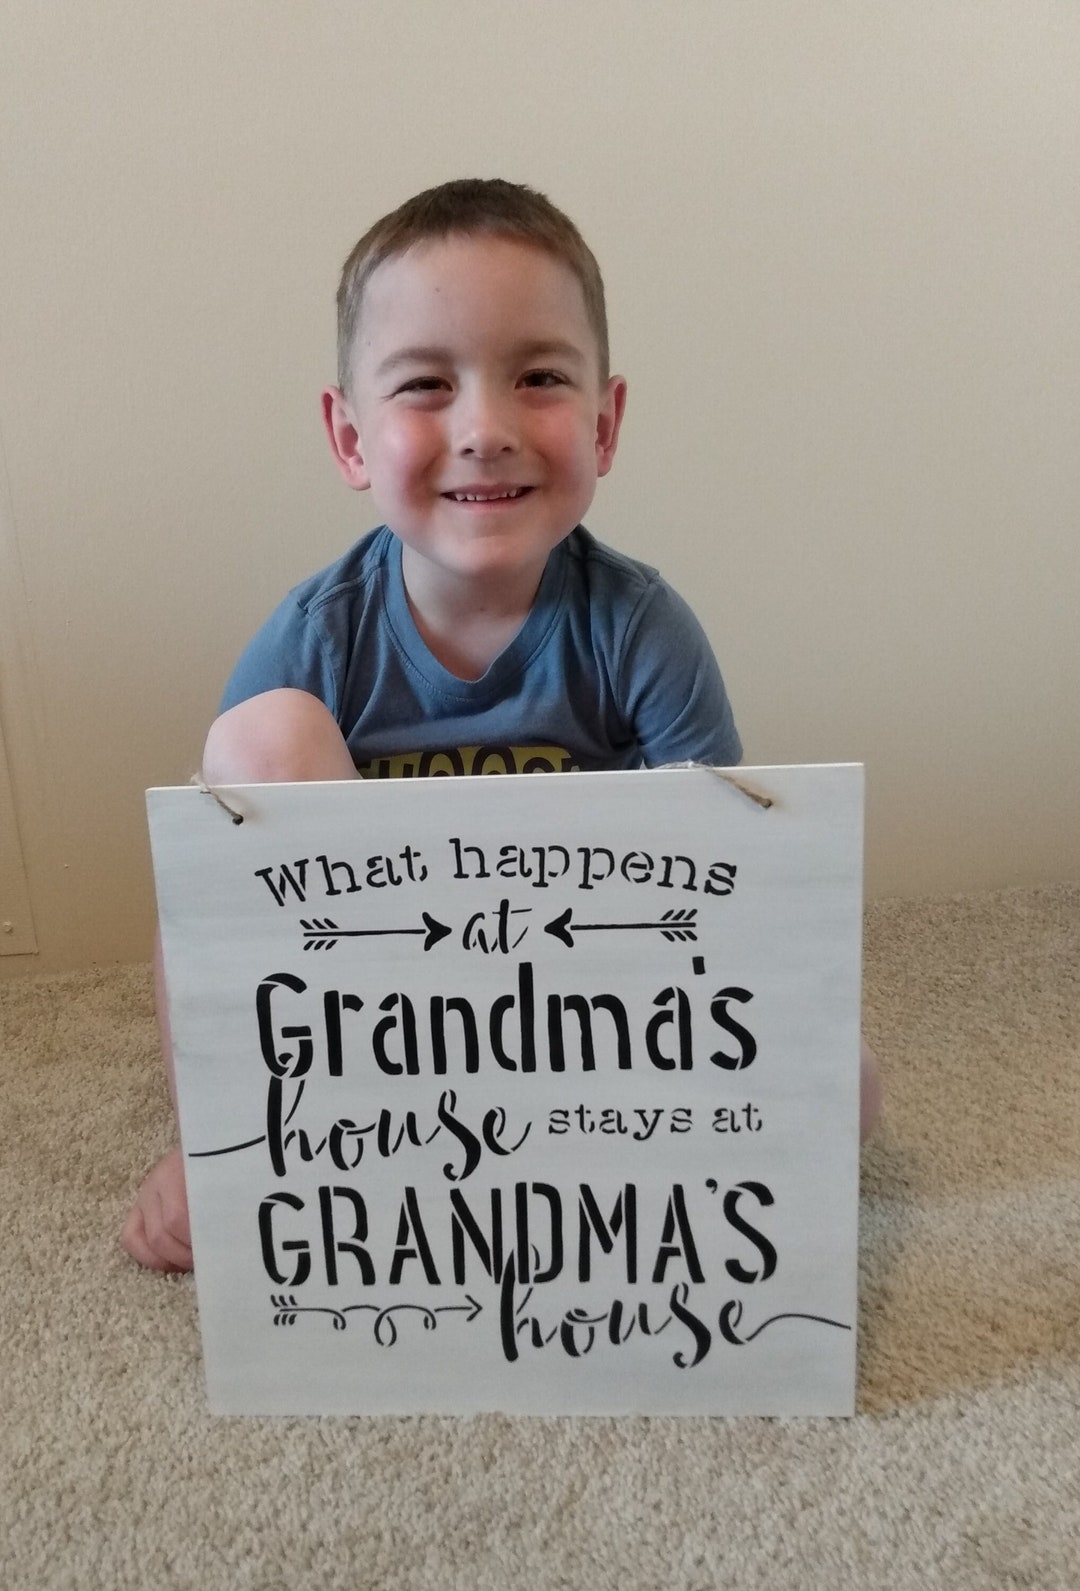 What happens
at
Grandma's
house stays at
GRANDMA'S
house